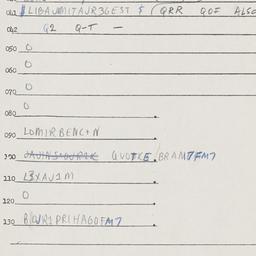 041 LIBAUMITAJR3GEST $ (QRR QOF ALSO
042 G2 Q-T —
050 0
060 0
070 0
080 0
090 LOMIRBENC+N
100 QVOTCE.BRAM7FM7
110 L3XAJ1M
120 0
130 B/WR1PRIHAGOFM7